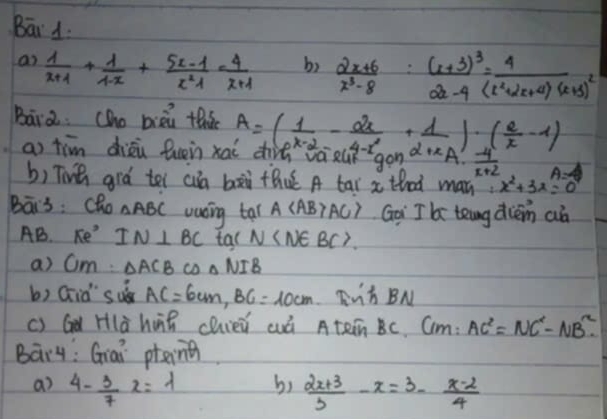 Bài 1:
a) 1/(x+1) + 1/(1-x) + (5x-1)/(x²-1) = 4/(x+1) b) (2x+6)/(x³-8) : (x+3)³/(2x-4) = 4/((x²+2x+4)(x+3)²)
Bài 2: Cho biểu thức A = (1/(x-2) - 2x/(4-x²) + 1/(2+x)) . (2/x - 1)
a) Tìm điều kiện xác định và rút gọn A. -4/(x+2)
b) Tính giá trị của biểu thức A tại x thoả mãn: x²+3x=0
Bài 3: Cho △ABC vuông tại A <AB>AC>. Gọi I là trung điểm của
AB. Kẻ IN ⊥ BC tại N <N∈BC>.
a) Cm: △ACB ∽ △NIB
b) Giả sử AC=6cm, BC=10cm. Tính BN
c) Gọi H là hình chiếu của A trên BC. Cm: AC² = NC² - NB²
Bài 4: Giải ptrình
a) 4 - 3/7 x = 1 b) (2x+3)/3 - x = 3 - (x-2)/4